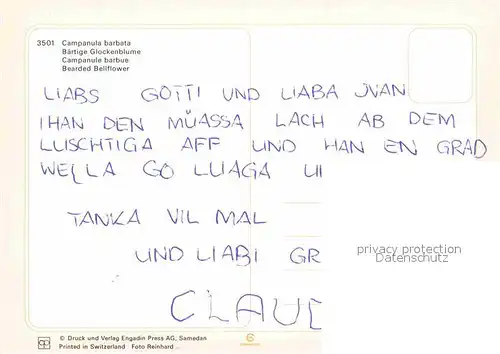 3501 Campanula barbata
Bärtige Glockenblume
Campanule barbue
Bearded Bellflower
LIABS GÖTTI UND LIABA JVAN
IHAN DEN MÜASSA LACH AB DEM
LUSCHTIGA AFF UND HAN EN GRAD
WELLA GO LUAGA UI
TANKA VIL MAL
UND LIABI GR
privacy protection
Datenschutz
CLAUD
© Druck und Verlag Engadin Press AG, Samedan
Printed in Switzerland Foto Reinhard